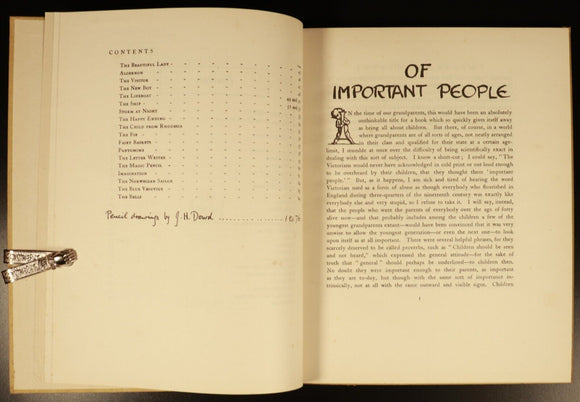 CONTENTS
THE BEAUTIFUL LADY
ALDERMON
THE VISITOR
THE NEW BOY
THE LIFEBOAT
THE SHIP
STORM AT NIGHT
THE HAPPY ENDING
THE CHILD FROM RHODESIA
THE FIB
FAIRY BASKETS
PANTOMIME
THE LETTER WRITER
THE MAGIC PENCIL
IMAGINATION
THE NORWEGIAN SAILOR
THE BLUE
THE BELLS
Pencil drawings by J. H. Dowd
OF
IMPORTANT PEOPLE
IN the time of our grandparents, this would have been an absolutely
unthinkable title for a book which so quickly gives itself away
as being all about children. But there, of course, in a world
where grandparents are of all sorts of ages, and not properly arranged
in their class and qualified for their state at a certain age-
limit, I stumble at once over the difficulty of being scientifically exact in
dealing with this sort of subject. I know a short-cut; I could say, "The
Victorians would never have acknowledged in cold print or out loud enough
to be overheard by their children, that they thought them 'important
people.'" But, as it happens, I am sick and tired of hearing the word
Victorian used as a form of abuse as though everybody who flourished in
England during three-quarters of the nineteenth century was exactly like
everybody else and very stupid, so I refuse to take it. I will say, instead,
that the people who were the parents of everybody over the age of forty
alive now—and that probably includes among the children a few of the
youngest grandparents extant—would have been convinced that it was very
unwise to allow the youngest generation—or even the next one—to look
upon itself as at all important. There were several helpful phrases, for they
scarcely deserved to be called proverbs, such as "Children should be seen
and not heard," which expressed the general attitude—for the sake of
truth that "general" should perhaps be underlined—to children then.
No doubt they were important enough to their parents, as important
as they are to-day, but though with the same sort of importance in-
trinsically, not at all with the same outward and visible signs. Children
1